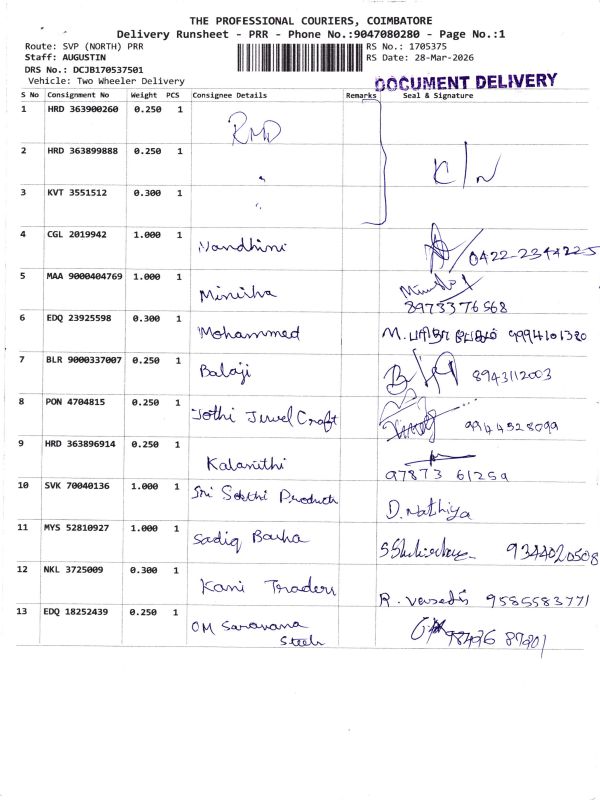 THE PROFESSIONAL COURIERS, COIMBATORE
Delivery Runsheet - PRR - Phone No.:9047080280 - Page No.:1
Route: SVP (NORTH) PRR RS No.: 1705375
Staff: AUGUSTIN RS Date: 28-Mar-2026
DRS No.: DCJB170537501
Vehicle: Two Wheeler Delivery
DOCUMENT DELIVERY
S No Consignment No Weight PCS Consignee Details Remarks Seal & Signature
1 HRD 363900260 0.250 1 RMD
2 HRD 363899888 0.250 1 " C/N
3 KVT 3551512 0.300 1 "
4 CGL 2019942 1.000 1 Nandhini 0422-2344225
5 MAA 9000404769 1.000 1 Minisha 8973376568
6 EDQ 23925598 0.300 1 Mohammed M. 9994101380
7 BLR 9000337007 0.250 1 Balaji 8943112003
8 PON 4704815 0.250 1 Jothi Jewel Craft 9944528099
9 HRD 363896914 0.250 1 Kalanithi 97873 61259
10 SVK 70040136 1.000 1 Sri Sakthi Products D. Nathiya
11 MYS 52810927 1.000 1 Sadiq Basha 9344020508
12 NKL 3725009 0.300 1 Kani Traders R. 9585583771
13 EDQ 18252439 0.250 1 OM Saravana
Steels